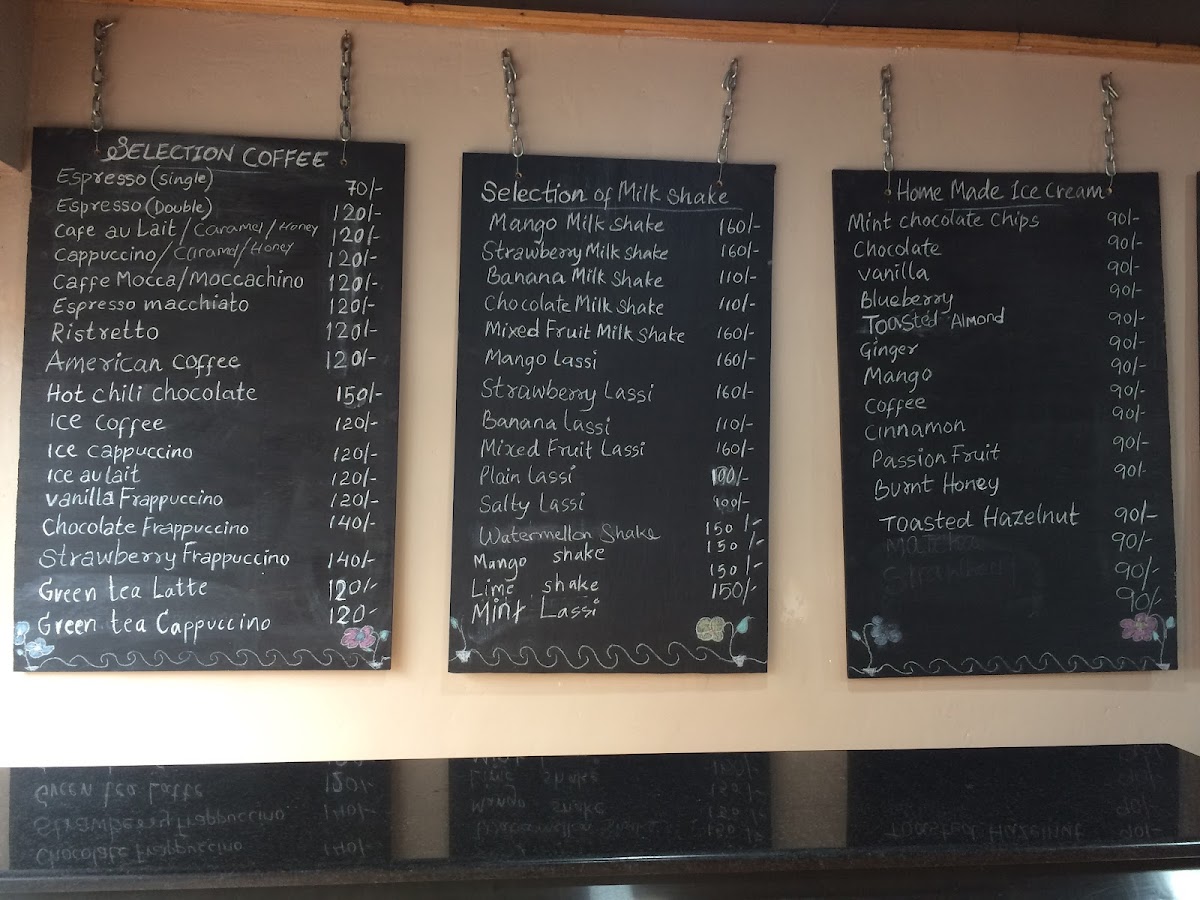 SELECTION COFFEE
Espresso (single) 70/-
Espresso (Double) 120/-
Cafe au Lait / Caramel / Honey 120/-
Cappuccino / Caramel / Honey 120/-
Caffe Mocca/Moccachino 120/-
Espresso macchiato 120/-
Ristretto 120/-
American coffee 120/-
Hot chili chocolate 150/-
Ice coffee 120/-
Ice cappuccino 120/-
Ice au lait 120/-
vanilla Frappuccino 120/-
Chocolate Frappuccino 140/-
Strawberry Frappuccino 140/-
Green tea Latte 120/-
Green tea Cappuccino 120-
Selection of Milk shake
Mango Milk shake 160/-
Strawberry Milk shake 160/-
Banana Milk shake 110/-
Chocolate Milk shake 110/-
Mixed Fruit Milk shake 160/-
Mango Lassi 160/-
Strawberry Lassi 160/-
Banana Lassi 110/-
Mixed Fruit Lassi 160/-
Plain Lassi
Salty Lassi
Watermellon Shake 150/-
Mango shake 150/-
Lime shake 150/-
Mint Lassi 150/-
Home Made Ice Cream
Mint chocolate Chips 90/-
Chocolate 90/-
vanilla 90/-
Blueberry 90/-
Toasted Almond 90/-
Ginger 90/-
Mango 90/-
Coffee 90/-
Cinnamon 90/-
Passion Fruit 90/-
Burnt Honey 90/-
Toasted Hazelnut 90/-
90/-
90/-
90/-